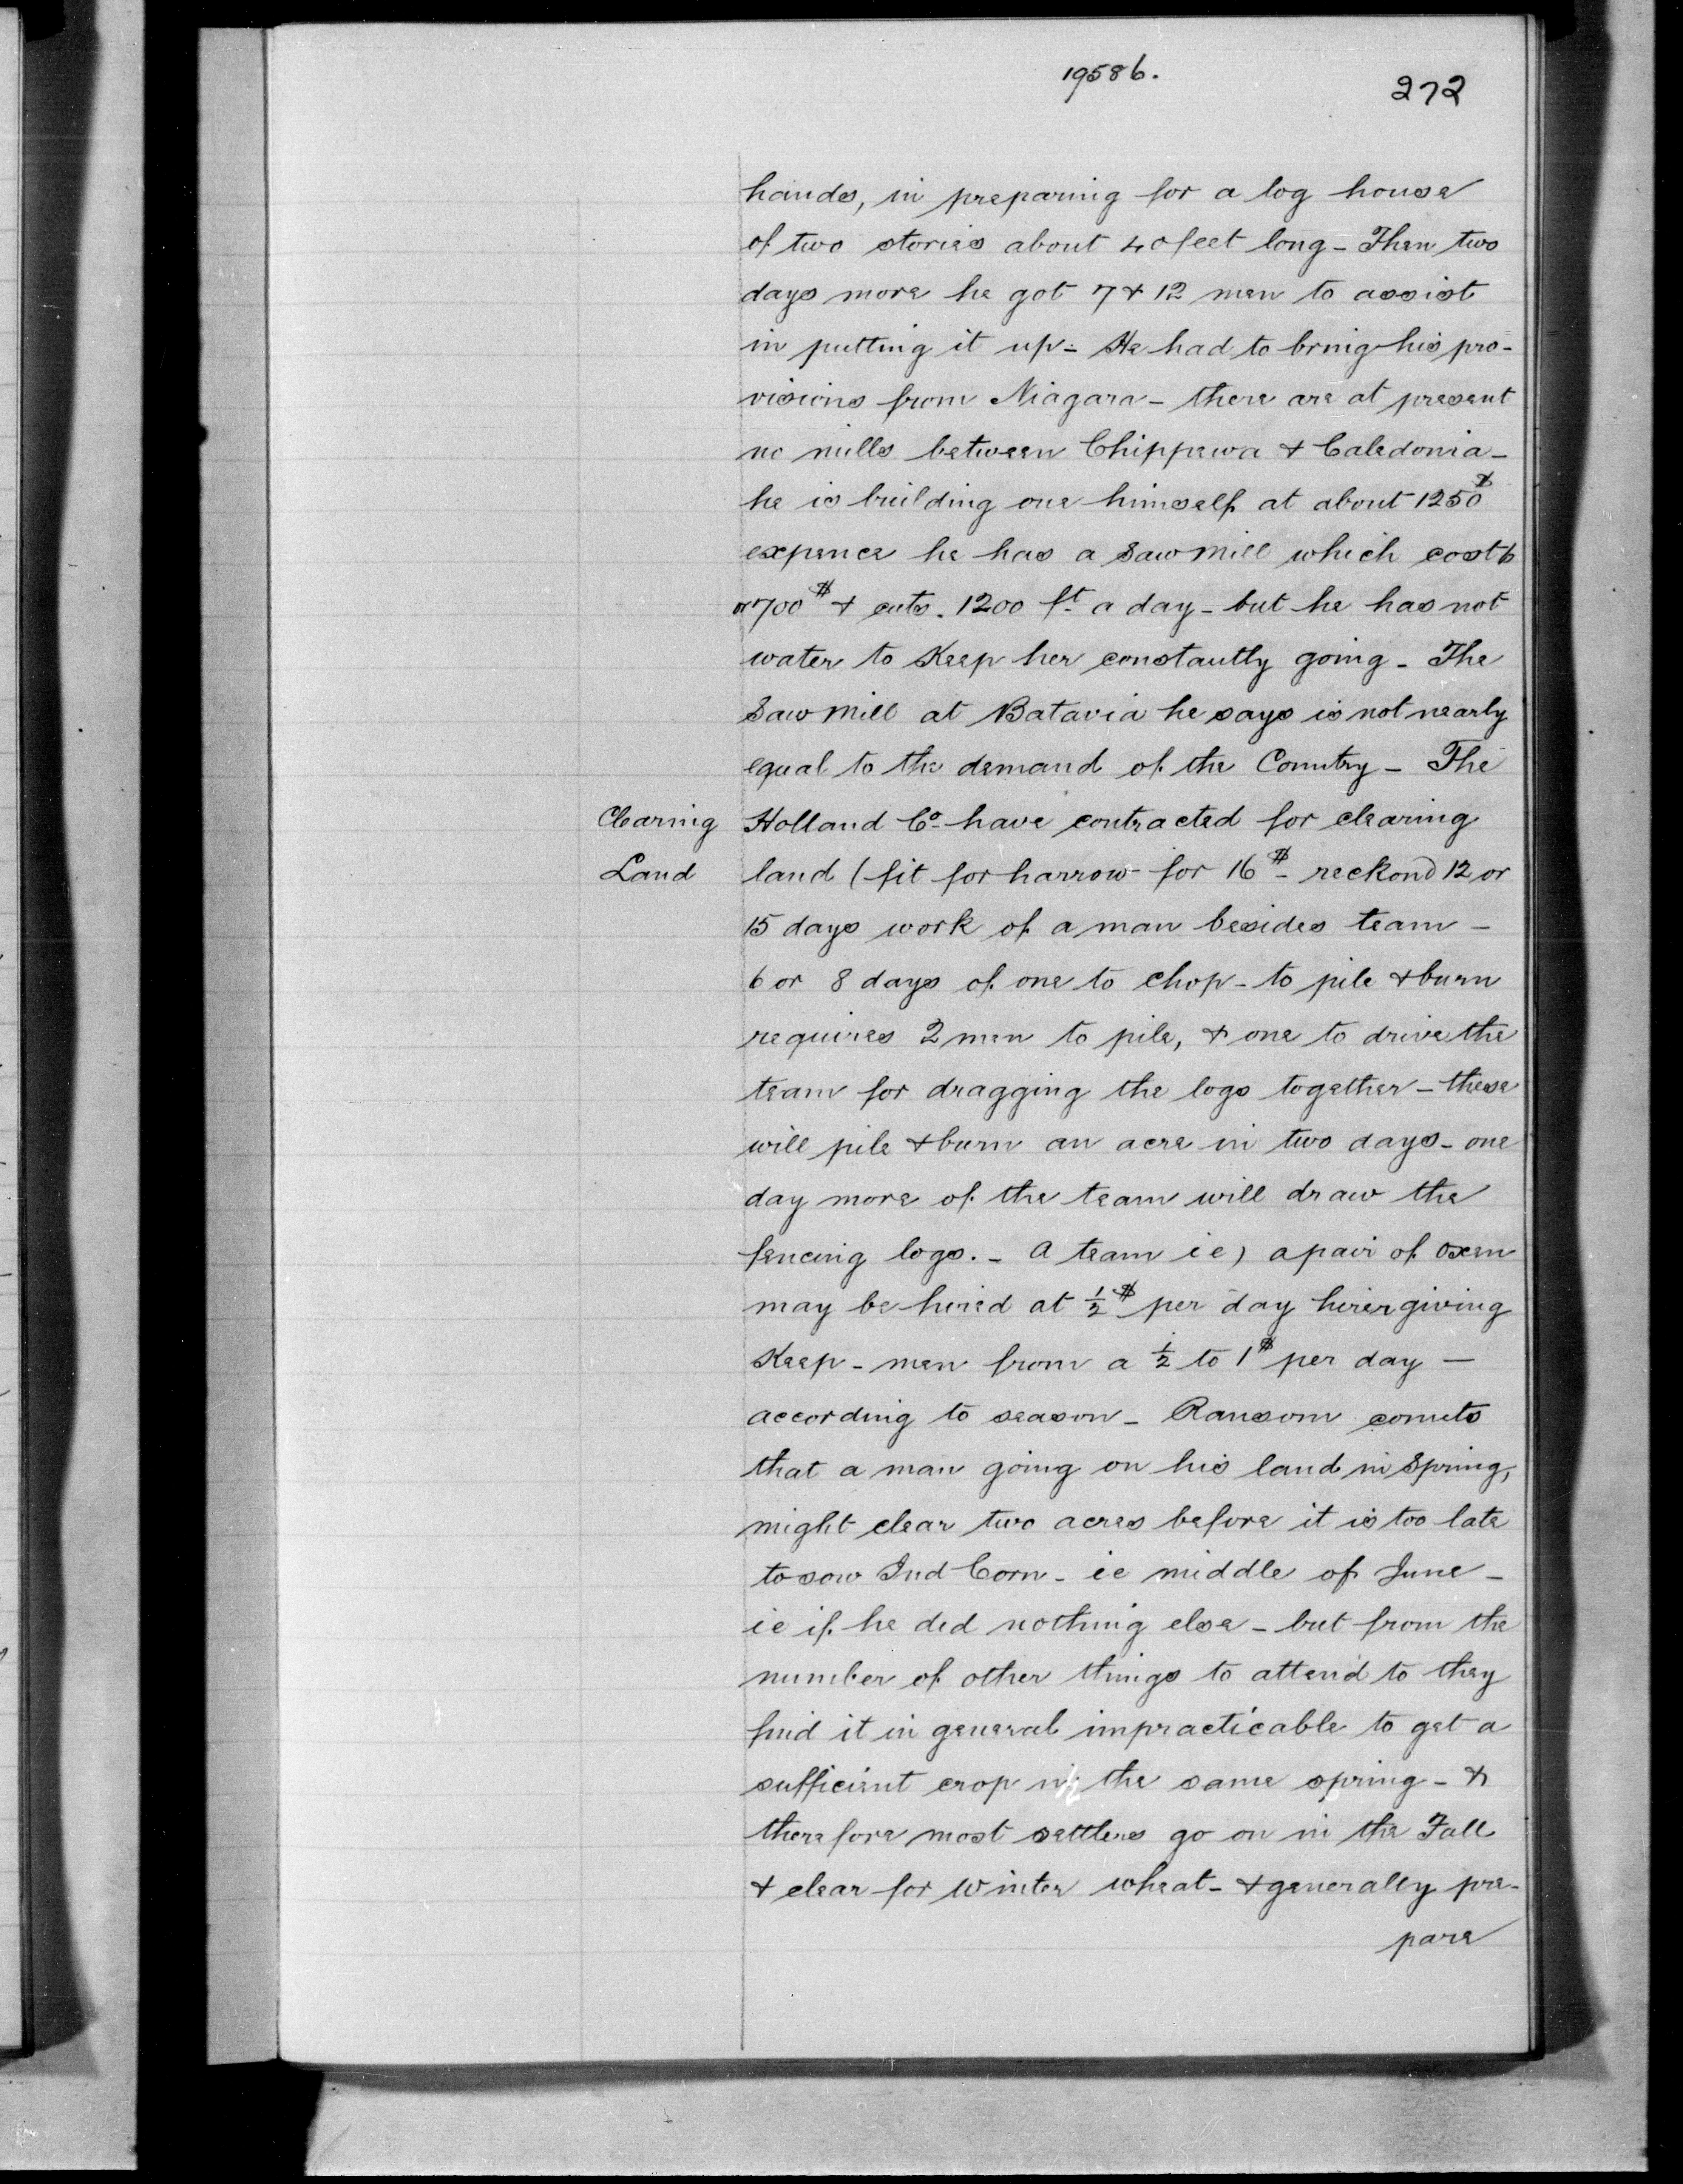 19586.
272
hands, in preparing for a log house
of two stories about 40 feet long - Then two
days more he got 7 & 12 men to assist
in putting it up - He had to bring his pro-
visions from Niagara - there are at present
no mills between Chippewa & Caledonia -
he is building one himself at about 1250$
expence he has a saw mill which cost 6
or 700$ & cuts. 1200 ft. a day - but he has not
water to Keep her constantly going - The
Saw Mill at Batavia he says is not nearly
equal to the demand of the Country - The
Clearing Holland Co. have contracted for clearing
Land land (fit for harrow for 16$ - reckond 12 or
15 days work of a man besides team -
6 or 8 days of one to chop - to pile & burn
requires 2 men to pile, & one to drive the
team for dragging the logs together - these
will pile & burn an acre in two days - one
day more of the team will draw the
fencing logs. - A team ie) a pair of Oxen
may be hired at ½$ per day hirer giving
Keep - men from a ½ to 1$ per day -
according to season - Ransom counts
that a man going on his land in Spring,
might clear two acres before it is too late
to sow Ind Corn - ie middle of June -
ie if he did nothing else - but from the
number of other things to attend to they
find it in general impracticable to get a
sufficient crop in the same spring - &
therefore most settlers go on in the Fall
& clear for Winter wheat - & generally pre-
pare